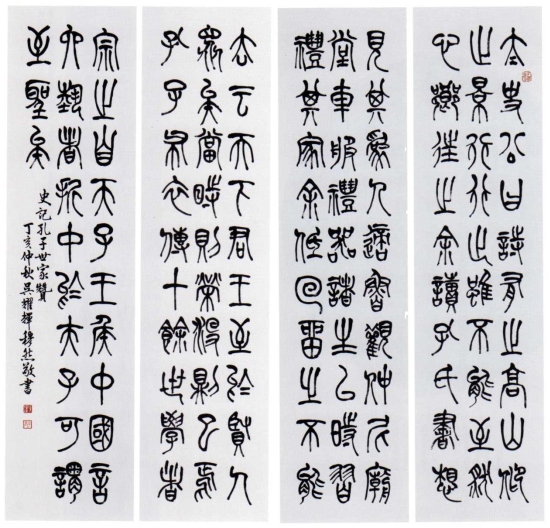 太史公曰詩有之高山仰
止景行行止雖不能至然
心鄉往之余讀孔氏書想
見其為人適魯觀仲尼廟
堂車服禮器諸生以時習
禮其家余低回留之不能
去云天下君王至於賢人
眾矣當時則榮沒則已焉
孔子布衣傳十餘世學者
宗之自天子王侯中國言
六藝者折中於夫子可謂
至聖矣
史記孔子世家贊
丁亥仲秋吳耀輝穆然敬書